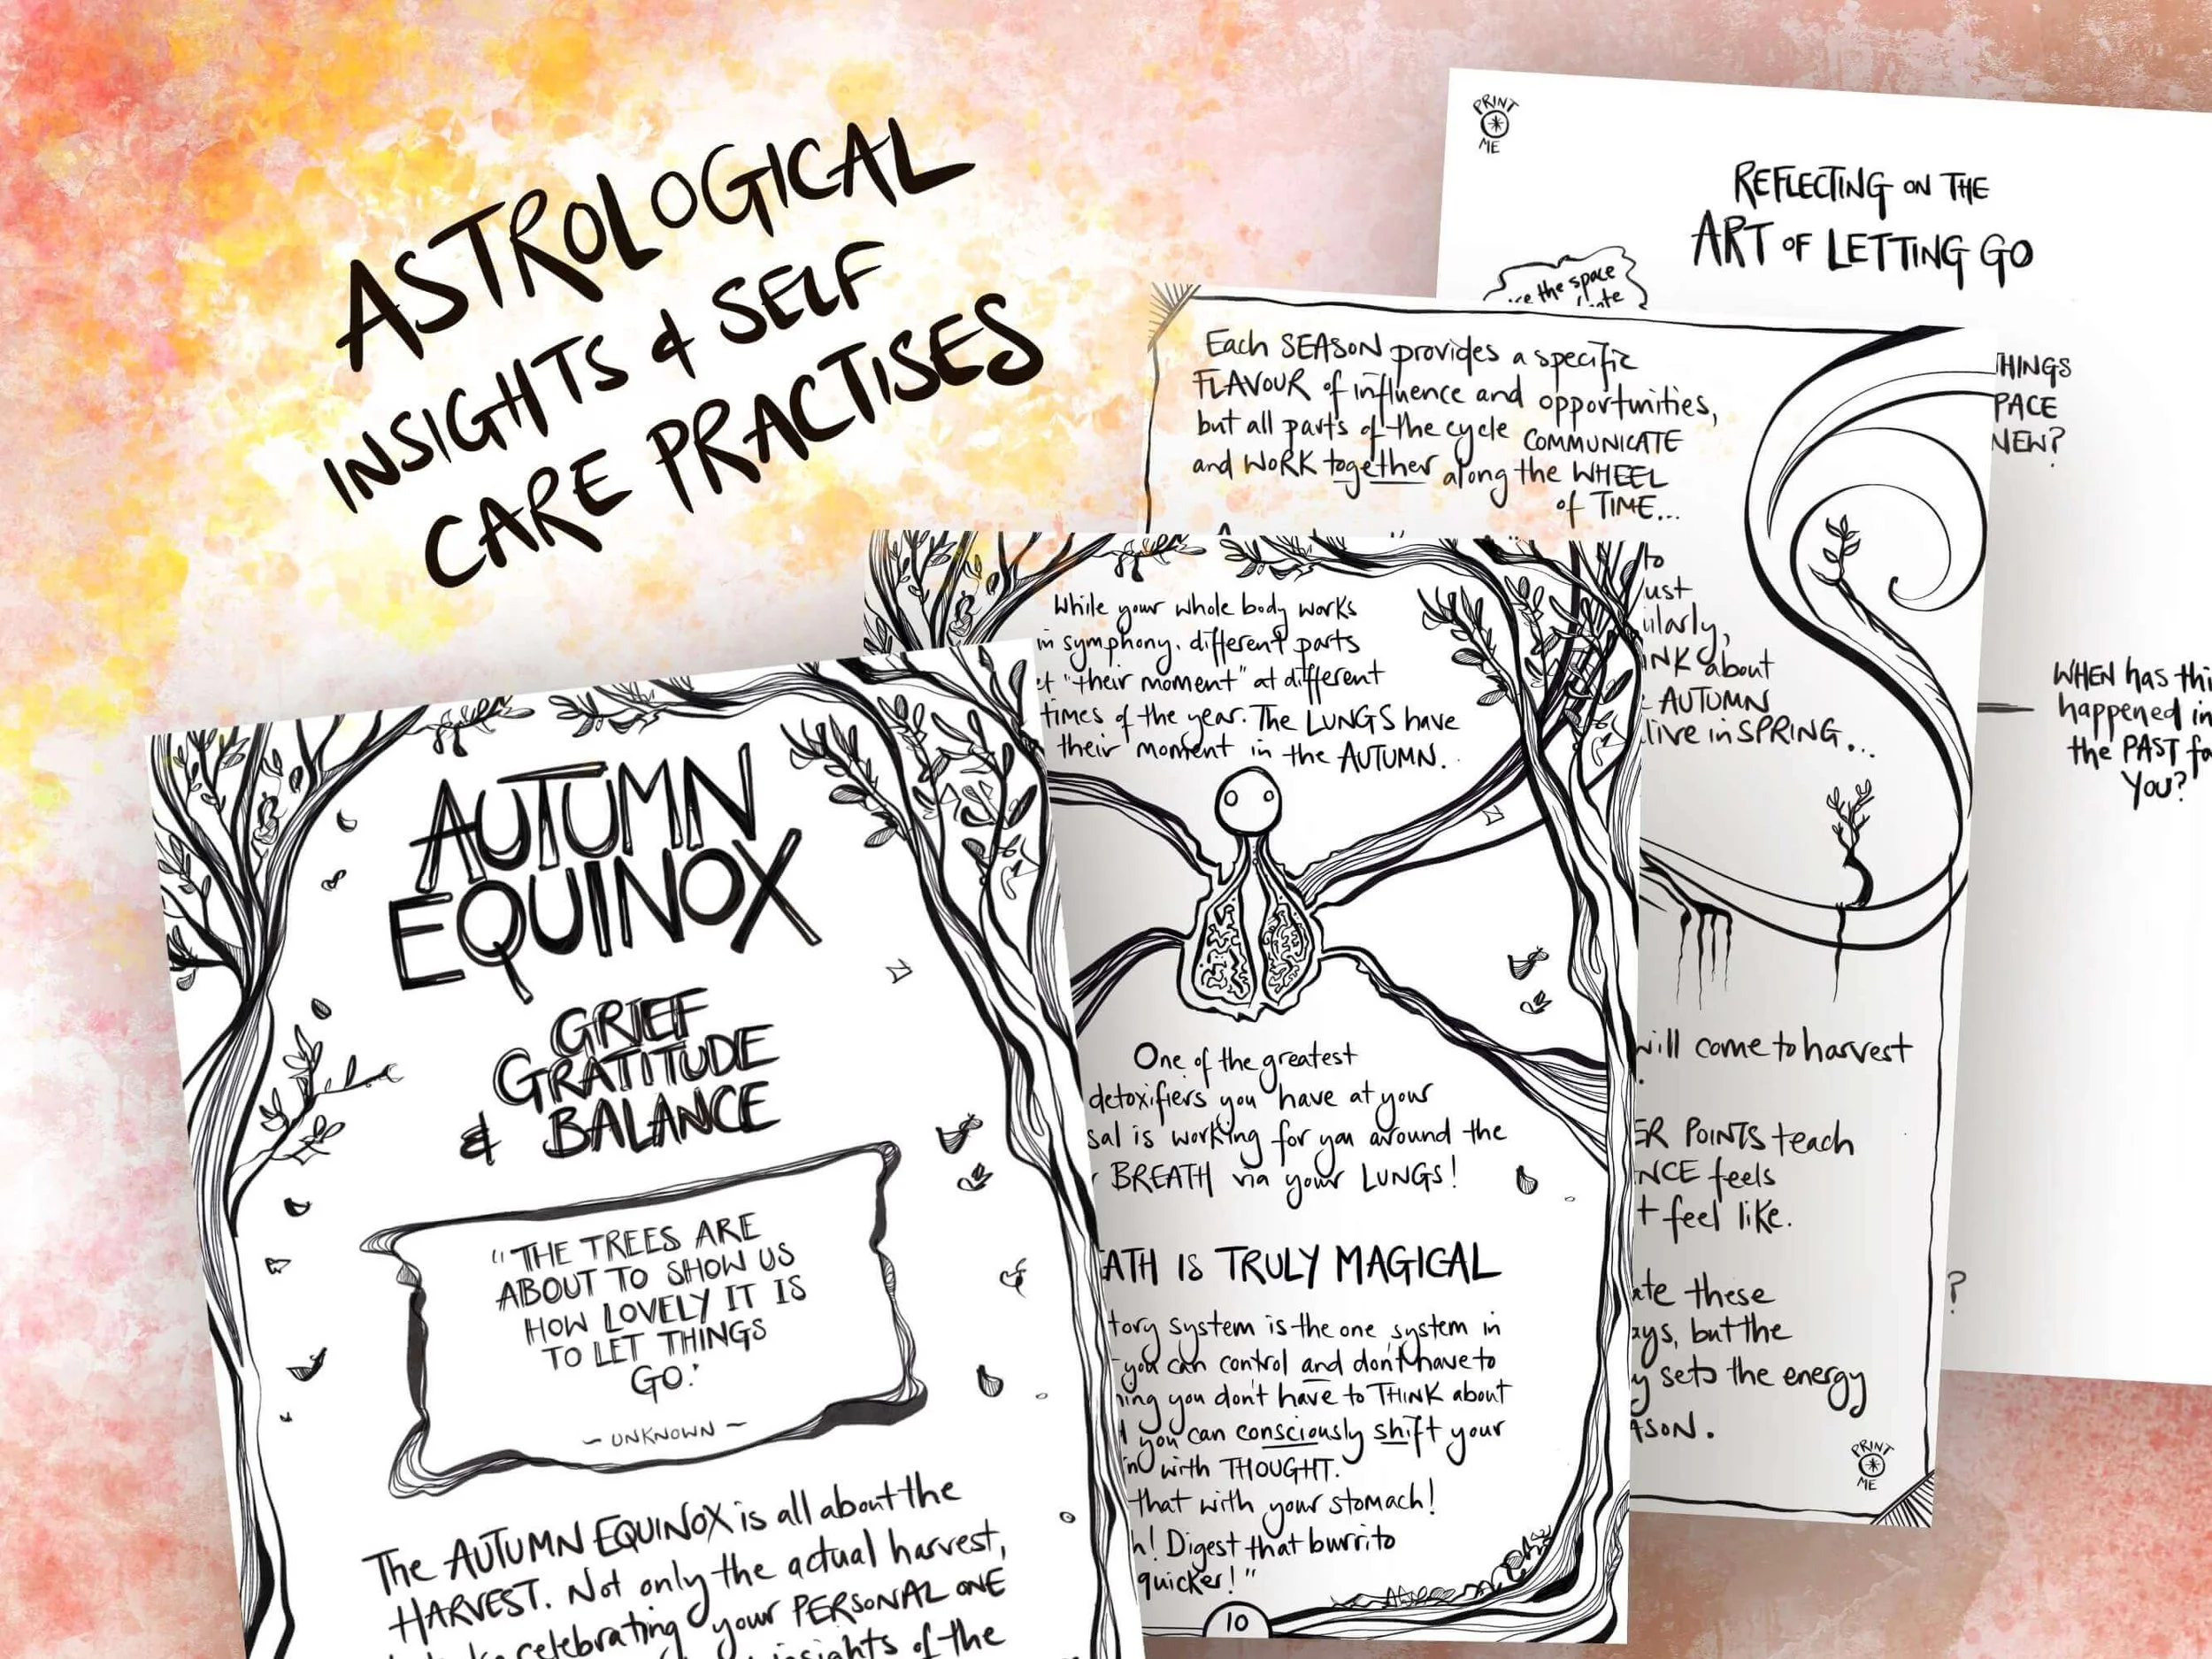 ASTROLOGICAL
INSIGHTS & SELF
CARE PRACTISES
AUTUMN
EQUINOX
GRIEF
GRATITUDE
& BALANCE
"THE TREES ARE
ABOUT TO SHOW US
HOW LOVELY IT IS
TO LET THINGS
GO."
~ UNKNOWN ~
The AUTUMN EQUINOX is all about the
HARVEST. Not only the actual harvest,
celebrating your PERSONAL ONE
insights of the
While your whole body works
in symphony, different parts
"their moment" at different
times of the year. The LUNGS have
their moment in the AUTUMN.
One of the greatest
detoxifiers you have at your
sal is working for you around the
BREATH via your LUNGS!
ATH IS TRULY MAGICAL
tory system is the one system in
you can control and don't have to
ing you don't have to THINK about
you can consciously shift your
with THOUGHT.
that with your stomach!
h! Digest that burrito
quicker!"
10
Each SEASON provides a specific
FLAVOUR of influence and opportunities,
but all parts of the cycle COMMUNICATE
and WORK together along the WHEEL
of TIME...
to
ust
ilarly,
INK about
AUTUMN
live in SPRING...
will come to harvest
ER POINTS teach
NCE feels
t feel like.
ate these
ays, but the
y sets the energy
ASON.
PRINT
ME
PRINT
ME
REFLECTING ON THE
ART OF LETTING GO
the space
HINGS
PACE
NEW?
WHEN has thi
happened in
the PAST fo
YOU?
?